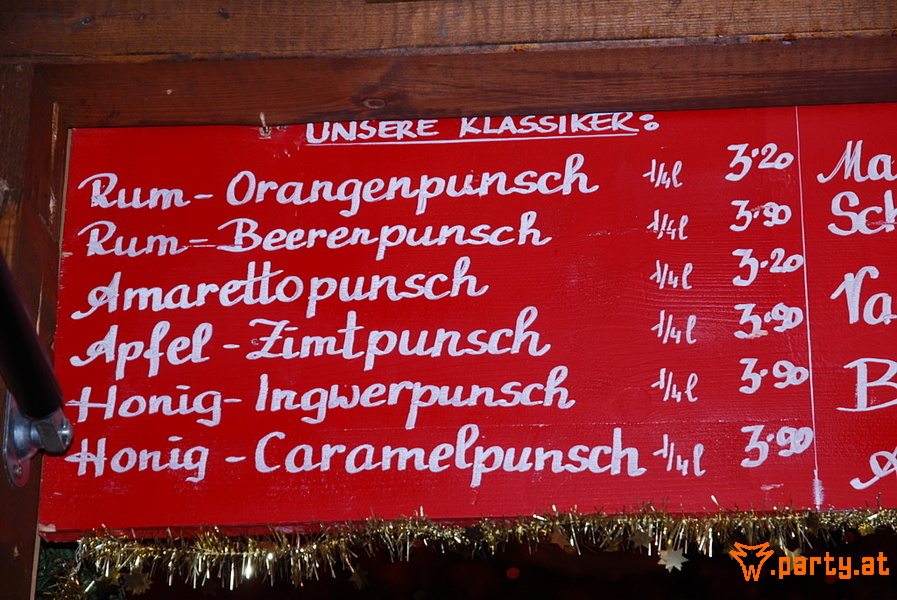 UNSERE KLASSIKER:
Rum-Orangenpunsch 1/4l 3.20
Rum-Beerenpunsch 1/4l 3.90
Amarettopunsch 1/4l 3.20
Apfel-Zimtpunsch 1/4l 3.90
Honig-Ingwerpunsch 1/4l 3.90
Honig-Caramelpunsch 1/4l 3.90
Ma
Sch
Va
B
party.at